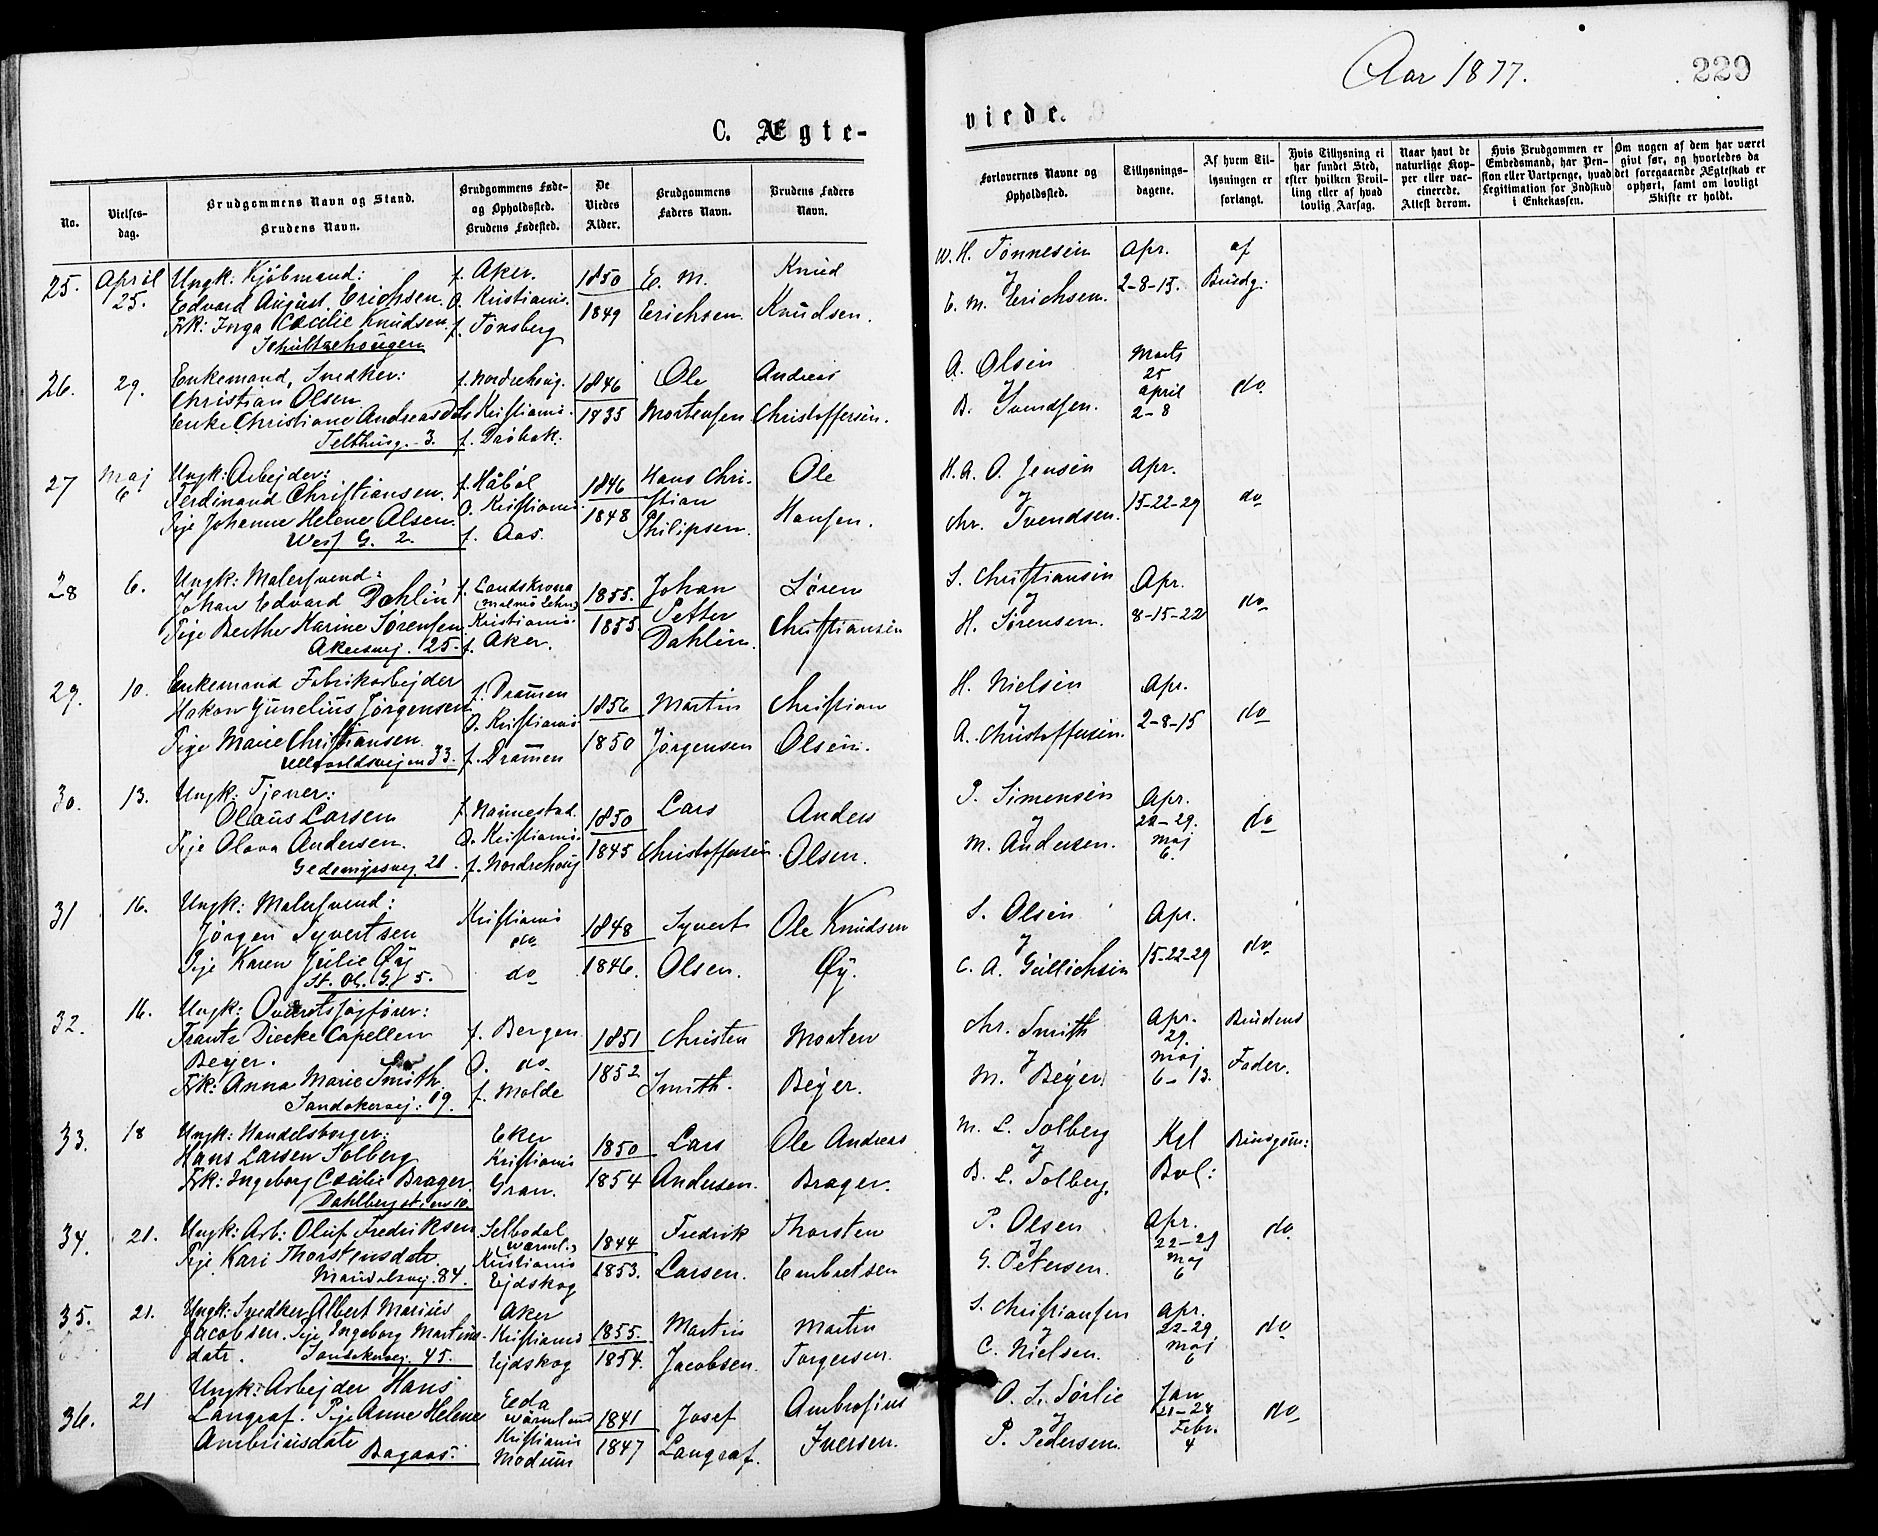 Aar 1877.
229
C. Ægte-
viede.
No.
Vielses-
dag.
Brudgommens Navn og Stand.
Brudens Navn.
Brudgommens Føde-
og Opholdssted.
Brudens Fødested.
De
Viedes
Alder.
Brudgommens
Faders Navn.
Brudens Faders
Navn.
Forlovernes Navne og
Opholdssted.
Tillysnings-
dagene.
Af hvem Til-
lysningen er
forlangt.
Hvis Tillysning ei
har fundet Sted,
efter hvilken Bevil-
ling eller af hvad
lovlig Aarsag.
Naar havt de
naturlige Kop-
per eller vac-
cinerede.
Attest derom.
Hvis Brudgommen er
Embedsmand, har Pen-
sion eller Vartpenge, hvad
Legitimation for Indskud
i Enkekassen.
Om nogen af dem har været
gift før, og hvorledes da
det foregaaende Ægteskab er
ophørt, samt om lovligt
Skifte er holdt.
25.
April
25.
Ungk: Kjøbmand:
Edvard August Erichsen.
Frk: Inga Cæcilie Knudsen.
Schultzehougen
f. Aker.
O. Kristiania.
f. Tønsberg
1850
1849
E. M.
Erichsen.
Knud
Knudsen.
W. H. Tønnesen
&
E. M. Erichsen.
Apr.
2-8-15.
af
Brudg:
26.
29.
Enkemand, Snedker:
Christian Olsen
Enke Christiane Andreasdatr
Telthusg. 3.
f. Nordrehoug.
Kristiania.
f. Drøbak.
1846
1835
Ole
Mortensen
Andreas
Christoffersen.
A. Olsen
B. Svendsen.
Marts
25
April
2-8
do
27
Maj
6
Ungk: Arbejder:
Ferdinand Christiansen.
Pige Johanne Helene Olsen.
West G. 2.
f. Håbøl
O. Kristiania
f. Aas.
1846
1848
Hans Chri-
stian
Philipsen.
Ole
Hansen.
H. A. O. Jensen
&
Chr. Svendsen.
Apr.
15-22-29
do
28
6.
Ungk: Malersvend:
Johan Edvard Dahlin
Pige Berthe Karine Sørensen
Akersvej. 25.
f. Landskrona
(Malmø Lehn)
Kristiania.
f. Aker.
1855.
1855
Johan
Petter
Dahlin.
Søren
Christiansen
S. Christiansen
&
H. Sørensen.
Apr.
8-15-22
do
29.
10.
Enkemand Fabrikarbejder
Hakon Gunelius Jørgensen
Pige Marie Christiansen
Ullevoldsvejen 33.
f. Drammen
O. Kristiania
f. Drammen
1856
1850
Martin
Jørgensen
Christian
Olsen.
H. Nielsen
&
A. Christoffersen.
Apr.
2-8-15
do
30.
13.
Ungk: Tjener:
Olaus Larsen
Pige Olava Andersen.
Gedemyrsvej 21.
f. Nannestad.
O. Kristiania
f. Nordrehoug
1850
1845
Lars
Christoffersen.
Anders
Olsen.
P. Simensen
&
M. Andersen.
Apr.
22-29.
Maj
6.
do
31
16.
Ungk: Malersvend:
Jørgen Syvertsen
Pige Karen Julie Øy
St. Ol. G. 5.
Kristiania
do
do
1848
1846.
Syvert
Olsen.
Ole Knudsen
Øy.
S. Olsen
&
C. A. Gullichsen
Apr.
15-22-29
do
32.
16.
Ungk: Overretssagfører:
Frantz Diecke Capellen
Beyer.
Frk: Anna Marie Smith.
Sandakervej: 19.
f. Bergen
O. do
f. Molde
1851
1852
Christen
Smith.
Morten
Beyer.
Chr. Smith
&
M. Beyer
Apr.
29.
Maj
6-13.
Brudens
Fader.
33.
18
Ungk: Handelsborger:
Hans Larsen Solberg
Frk: Ingeborg Cæcilie Brager.
Dahlbergstien 10.
Eker
Kristiania
Gran.
1850
1854
Lars
Andersen.
Ole Andreas
Brager.
M. L. Solberg
&
B. L. Solberg.
Kgl
Bvl:
Brudgom:
34.
21.
Ungk: Arb: Oluf Fredriksen
Pige Kari Thorstensdatr.
Maridalsvej. 84.
Selbodal
(Wærml.)
Kristiania
Ejdskog
1844
1853.
Fredrik
Larsen.
Thorsten
Embretsen
P. Olsen
&
G. Petersen.
Apr.
22-29
Maj
6
do
35.
21.
Ungk: Snedker Albert Marius
Jacobsen. Pige Ingeborg Martins-
datr.
Sandakervej. 45.
Aker
Kristiania
Ejdskog
1855.
1854.
Martin
Jacobsen.
Martin
Torgersen.
S. Christiansen
&
C. Nielsen.
Apr.
22-29.
Maj
6
do
36.
21
Ungk: Arbejder Hans
Langraf. Pige Anne Helene
Ambriusdatr
Bagaas:
Eda
Wærmland
Kristiania
Modum
1841
1847
Josef
Langraf.
Ambrosius
Iversen.
O. S. Sørlie
&
P. Pedersen.
Jan
21-28
Febr.
4
do